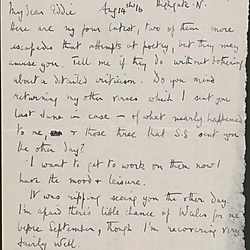 My dear Eddie Aug 14th 16 Highgate N.
Here are my four latest, two of them more
escapades that attempts at poetry, but they may
amuse you. Tell me if they do without bothering
about a detailed criticism. Do you mind
returning my other verses which I sent you
last June in case – of what nearly happened
to me, & those three that S.S sent you
the other day?
I want to get to work on them now I
have the mood & leisure.
It was ripping seeing you the other day.
I'm afraid there's little chance of Wales for me
before September, though I'm recovering very
fairly well.